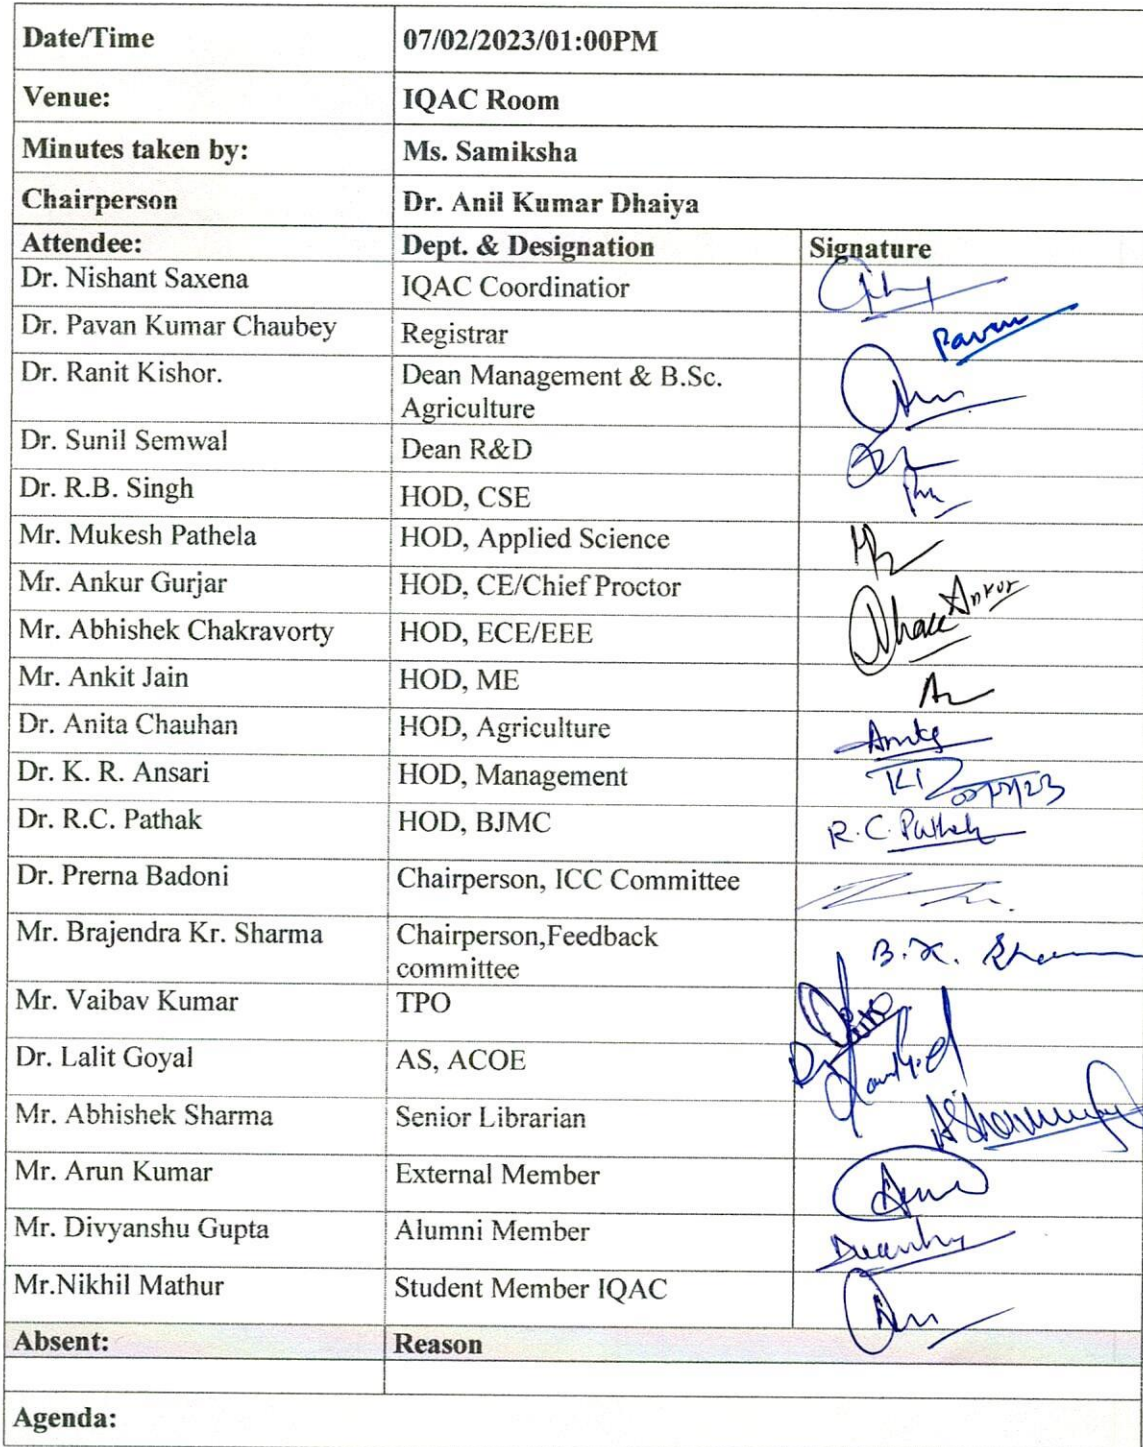 Date/Time 07/02/2023/01:00PM
Venue: IQAC Room
Minutes taken by: Ms. Samiksha
Chairperson Dr. Anil Kumar Dhaiya
Attendee: Dept. & Designation Signature
Dr. Nishant Saxena IQAC Coordinatior
Dr. Pavan Kumar Chaubey Registrar Pavan
Dr. Ranit Kishor. Dean Management & B.Sc.
Agriculture
Dr. Sunil Semwal Dean R&D
Dr. R.B. Singh HOD, CSE
Mr. Mukesh Pathela HOD, Applied Science
Mr. Ankur Gurjar HOD, CE/Chief Proctor Ankur
Mr. Abhishek Chakravorty HOD, ECE/EEE
Mr. Ankit Jain HOD, ME
Dr. Anita Chauhan HOD, Agriculture
Dr. K. R. Ansari HOD, Management
Dr. R.C. Pathak HOD, BJMC R.C. Pathak
Dr. Prerna Badoni Chairperson, ICC Committee
Mr. Brajendra Kr. Sharma Chairperson,Feedback B.K. Sharma
committee
Mr. Vaibav Kumar TPO
Dr. Lalit Goyal AS, ACOE
Mr. Abhishek Sharma Senior Librarian
Mr. Arun Kumar External Member
Mr. Divyanshu Gupta Alumni Member
Mr.Nikhil Mathur Student Member IQAC
Absent: Reason
Agenda: